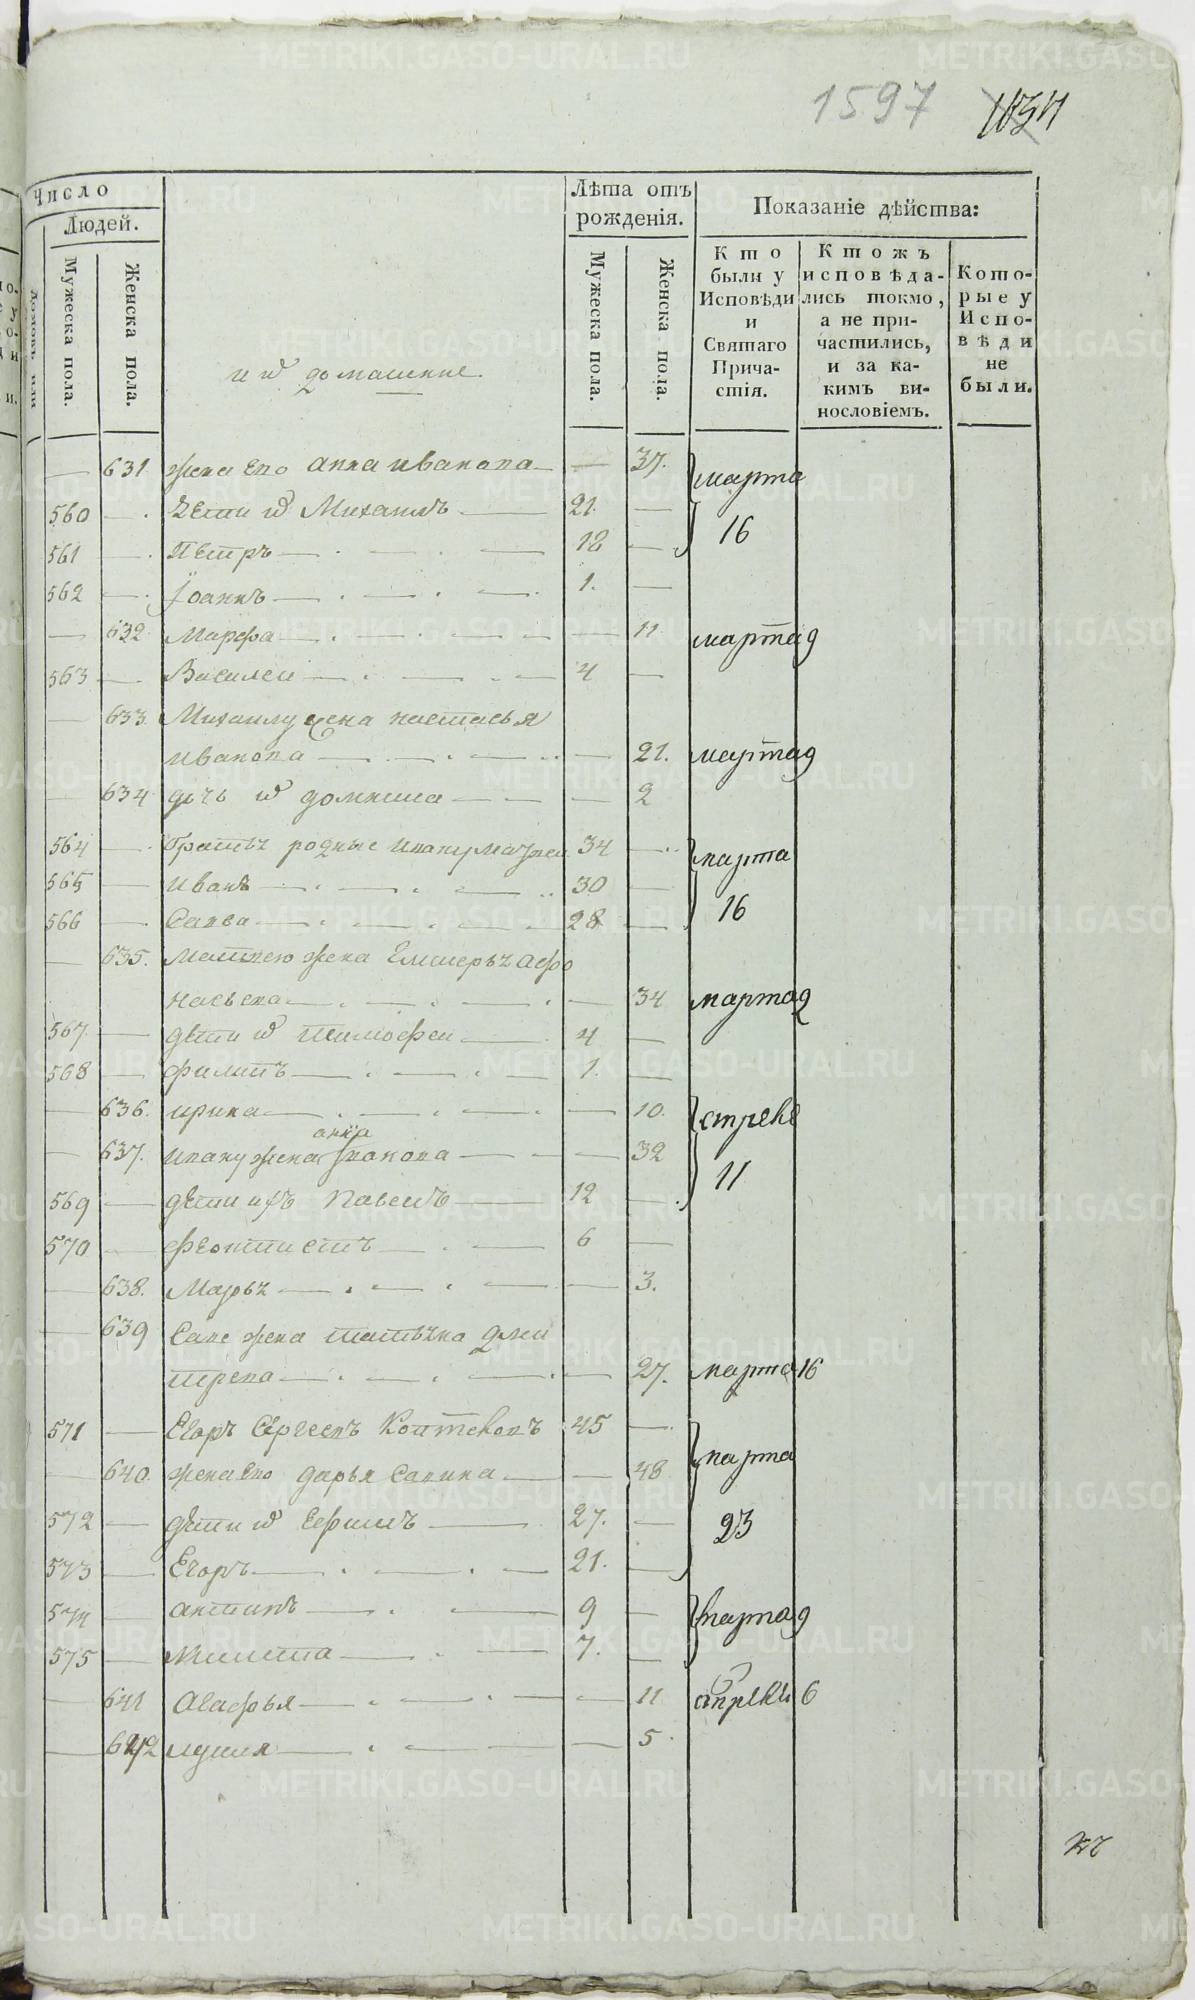 1597 1034
Число
Людей.
Мужеска пола.
Женска пола.
и их домашние
Лѣта отъ
рожденія.
Мужеска пола.
Женска пола.
Показаніе дѣйства:
Кто
были у
Исповѣди
и
Святаго
Прича-
стія.
Ктожъ
исповѣда-
лись токмо,
а не при-
частились,
и за ка-
кимъ ви-
нословіемъ.
Кото-
рые у
Испо-
вѣди
не
были.
— 631 жена Его анна иванова — 37. марта
560 — дѣти их Михаилъ 21 — 16
561 — Петръ 18 —
562 — Iоаннъ 1. —
— 632 Марфа — 11 марта 9
563 — Василеи 4 —
— 633 Михаилу жена настасья
иванова — 21. марта 9
— 634 дочь их домниша — 2
564 — братья родные 34 — марта
565 — иванъ 30 — 16
566 — Савва 28 —
— 635. Матвею жена афо
насьева — 34 марта 9
567 — дѣти их тимофеи 4 —
568 — филипъ 1. —
— 636. ирина — 10. апреля
анна
— 637. ивану жена — 32 11
569 — дѣти ихъ павелъ 12 —
570 — феоктистъ 6 —
— 638. Марья — 3.
— 639 Саве жена татьяна дми
трева — 27. марта 16
571 — Егоръ Сергеевъ 45 — марта
— 640 жена Его дарья Савина — 48
572 — дѣти их Ефимъ 27. — 23
573 — Егоръ 21. —
574 — антипъ 9 — марта 9
575 — Никита 7. —
— 641 Агафья — 11 апреля 6
— 642 — 5.